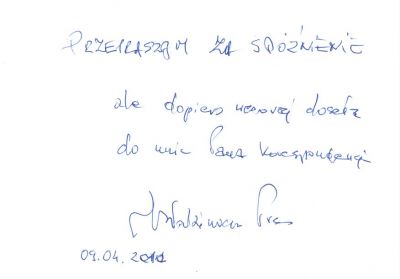 PRZEPRASZAM ZA SPÓŹNIENIE
ale dopiero wczoraj doszła
do mnie Pana korespondencja
09.04.2011